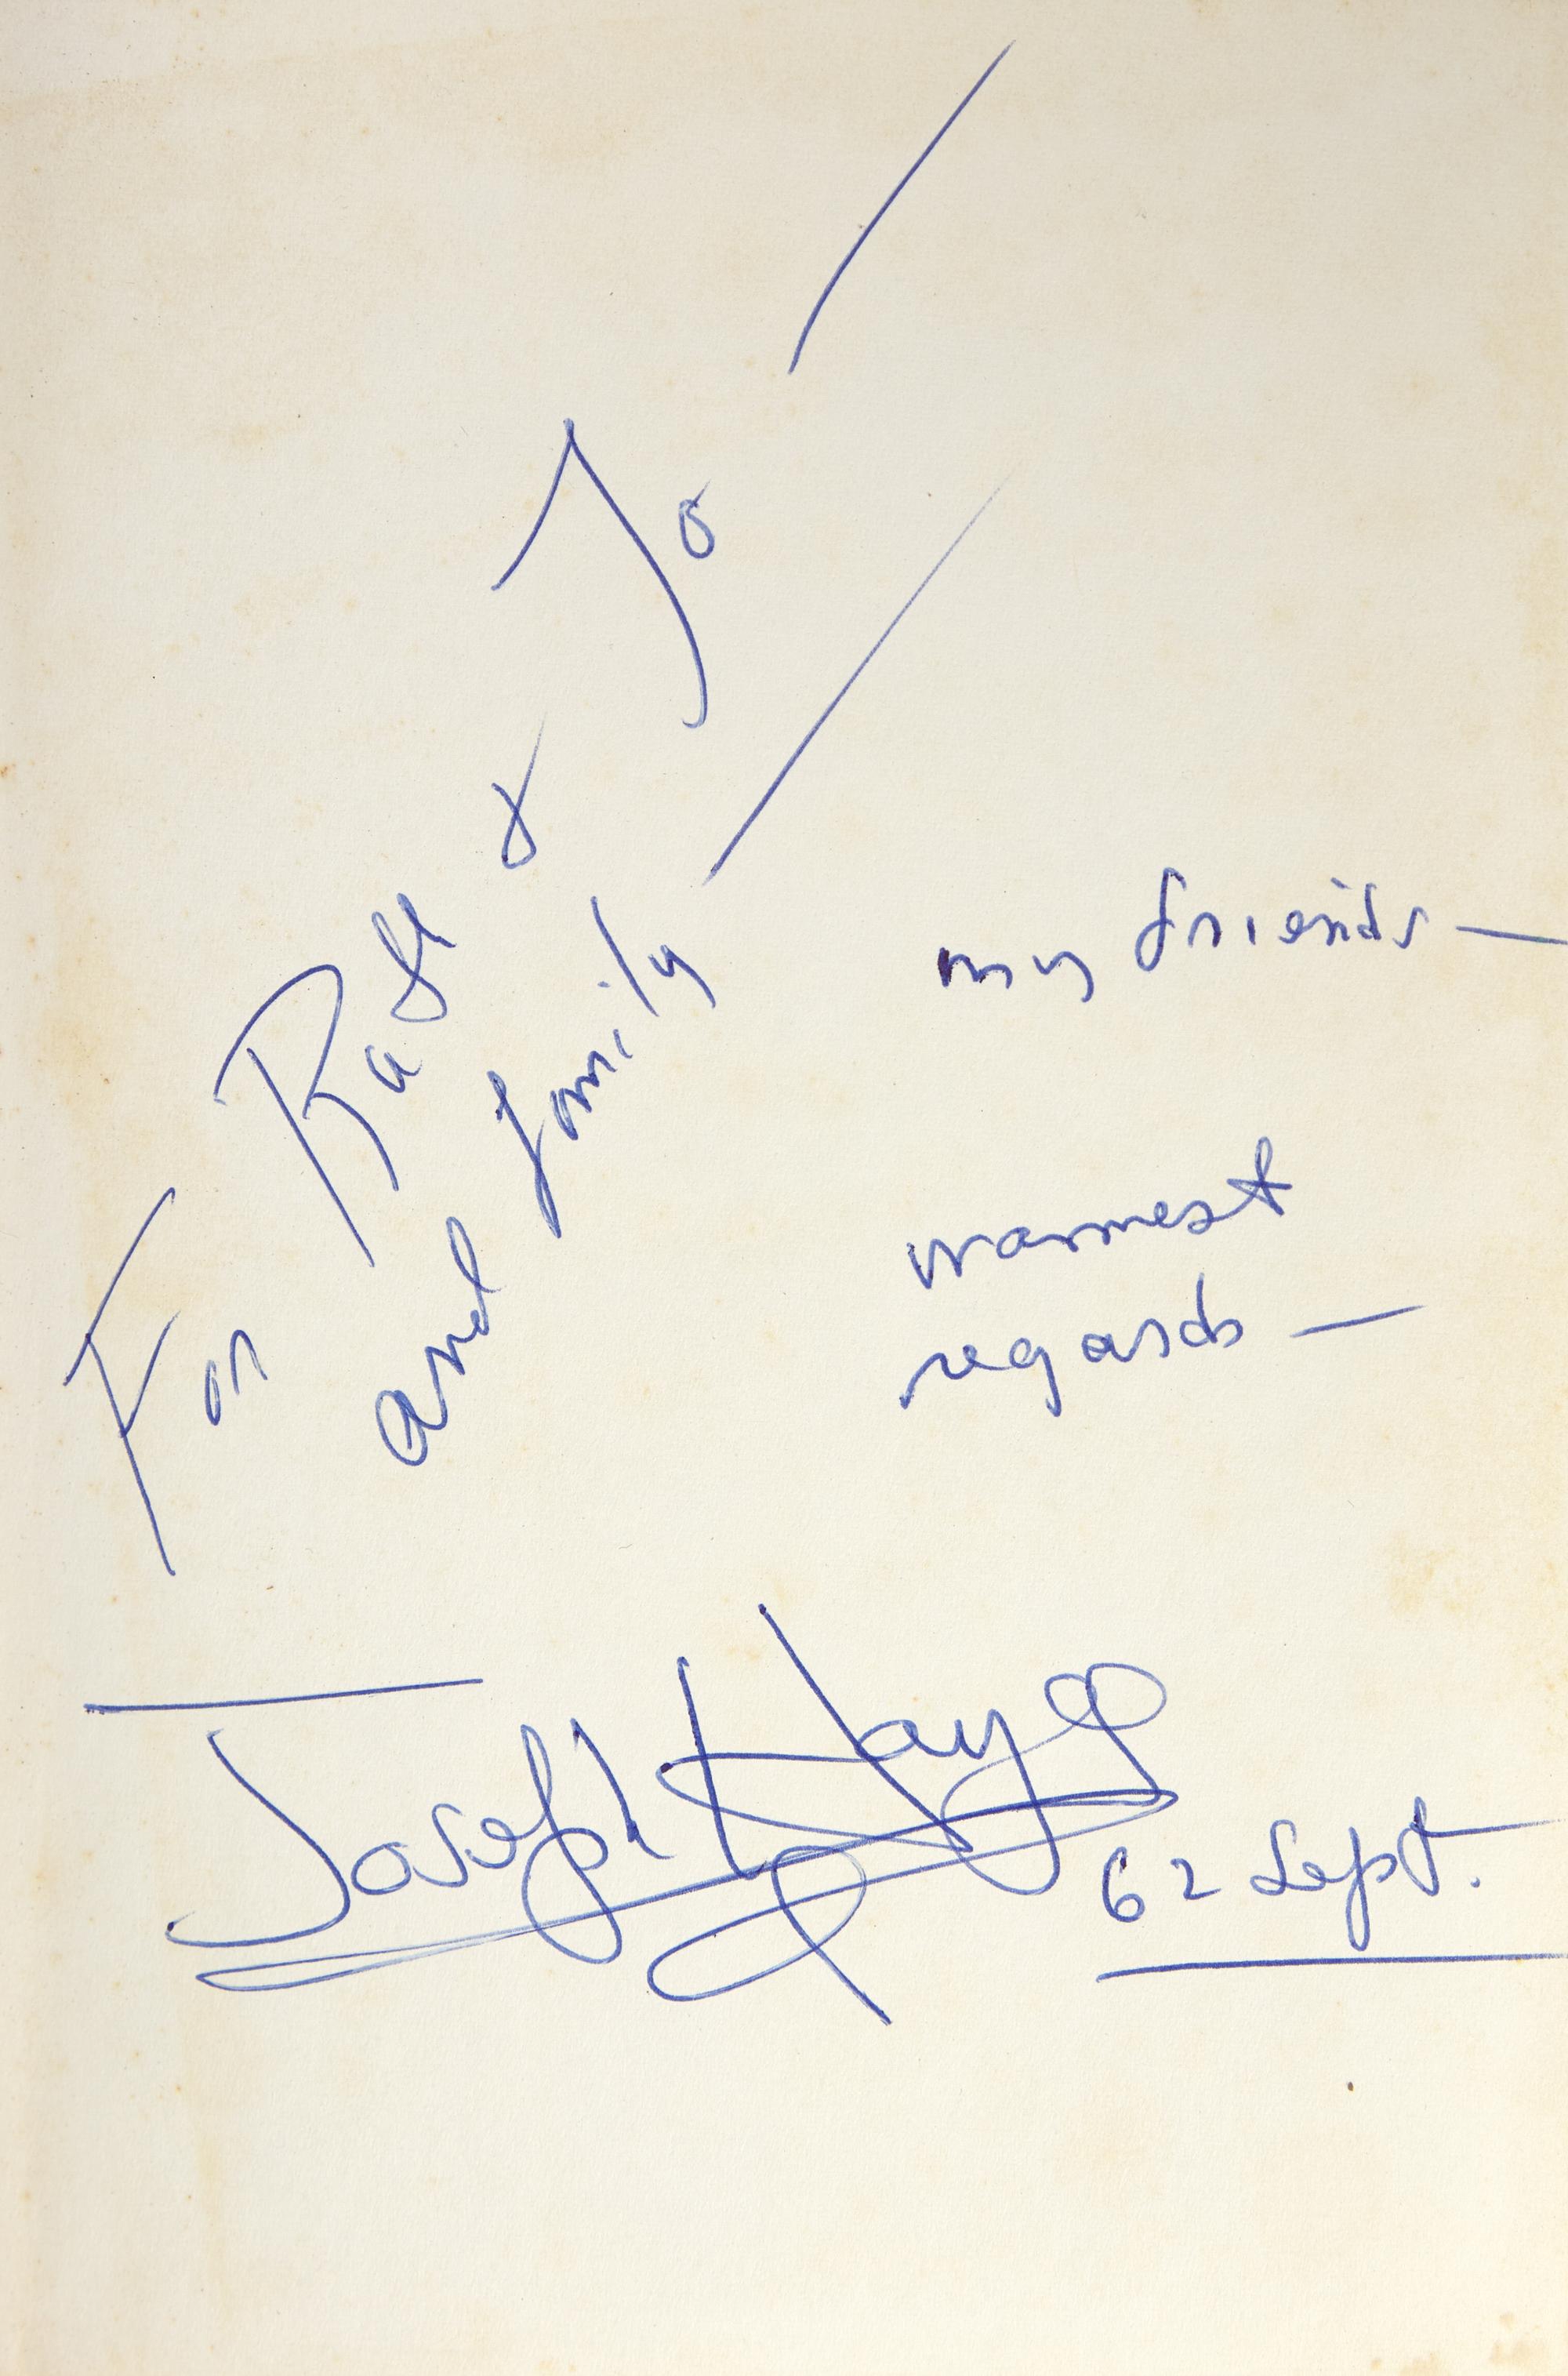 For & Jo
and family
my friends —
warmest
regards —
Joseph Hayes
62 Sept.